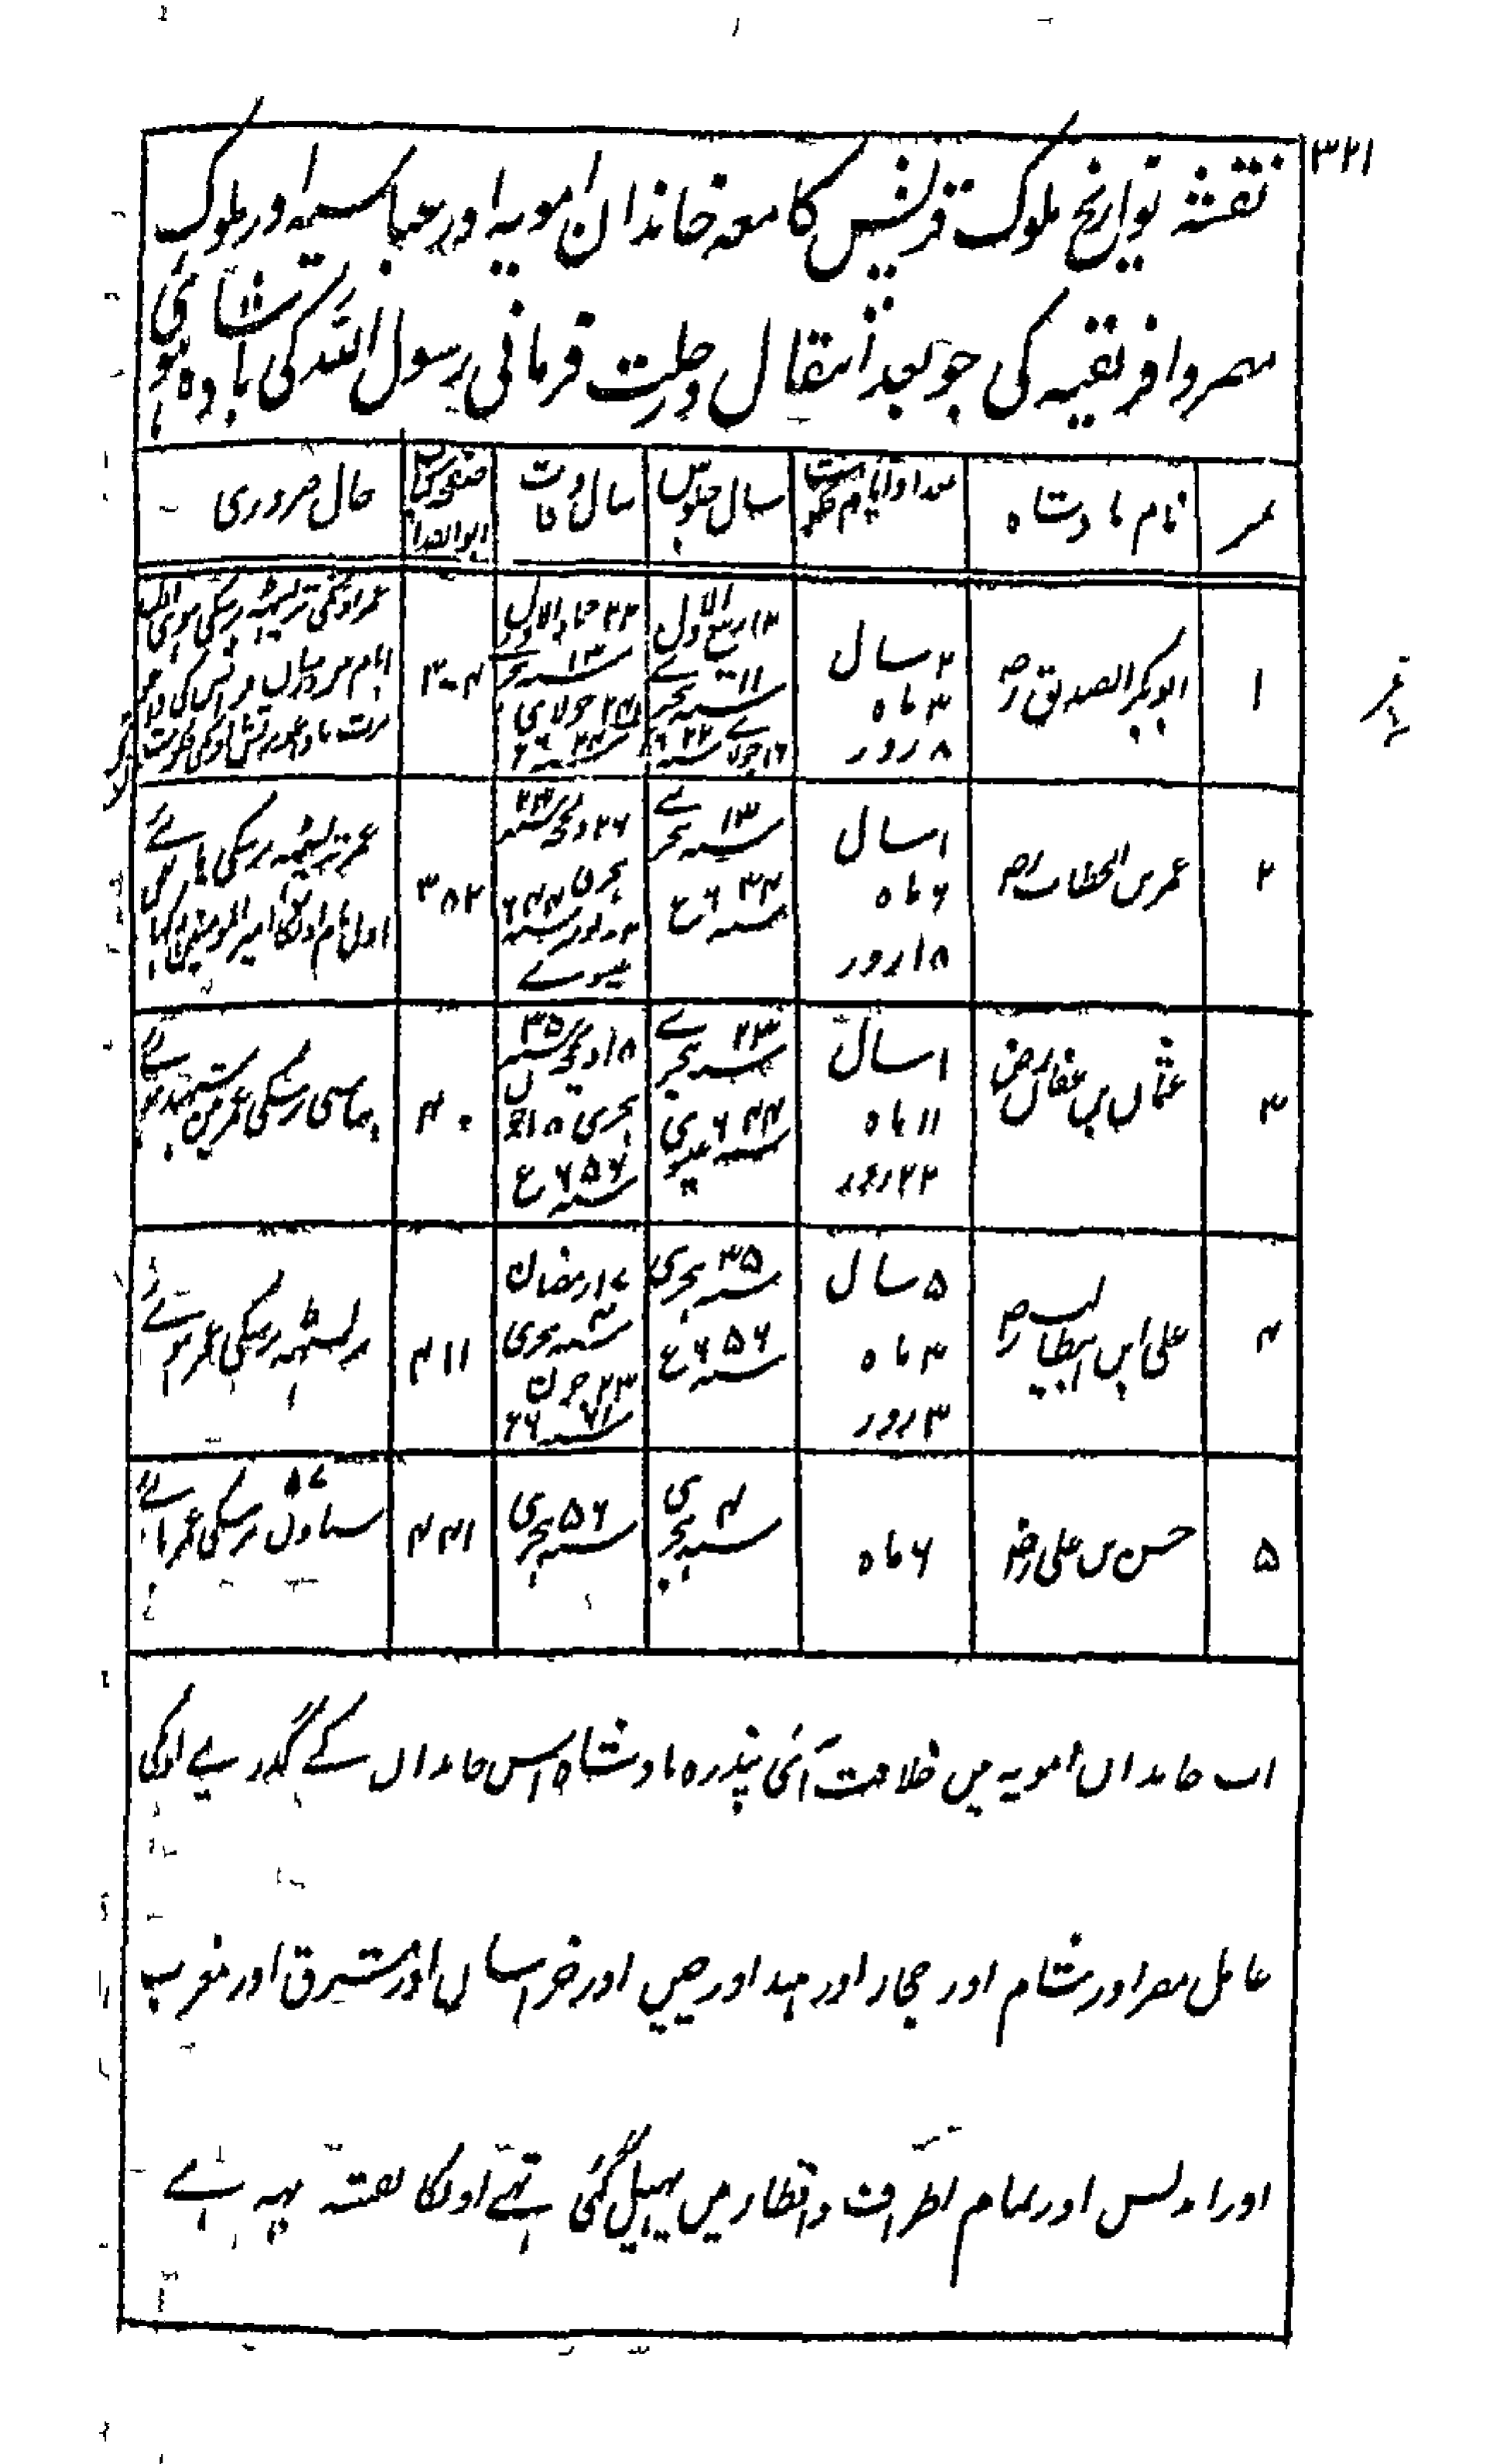 ۳۲۱
نقشہ تواریخ ملوک قریش کا معہ خاندان امویہ اور عباسیہ اور ملوک
مصر و افریقیہ کی جو بعد انتقال و رحلت فرمانی رسول اللہ کی بادشاہ ہوئی
نمبر | نام بادشاہ | تعداد ایام حکومت | سال جلوس | سال وفات | ابوالفدا | حال ضروری
۱ | ابوبکر الصدیق رض | ۲ سال ۳ ماہ ۸ روز | ۱۳ ربیع الاول سنہ ۱۱ ہجرے | ۲۲ جماد الاول سنہ ۱۳ ہجرے | ۳۰۴ | عمر اونکی تریسٹھہ برسکی ہوئی
۲ | عمر بن الخطاب رض | ۱۰ سال ۶ ماہ ۱۸ روز | سنہ ۱۳ ہجرے سنہ ۶۳۴ ع | ۲۶ ذیحجہ سنہ ۲۳ ہجری سنہ ۶۴۴ عیسوے | ۳۵۲ | عمر تریسٹھہ برسکی پائے اول نام اونکا امیر المومنین
۳ | عثمان بن عفان رض | ۱۱ سال ۱۱ ماہ ۲۲ روز | سنہ ۲۳ ہجرے سنہ ۶۴۴ عیسوی | ۱۸ ذیحجہ سنہ ۳۵ ہجری سنہ ۶۵۶ ع | ۴۰۰ | بیاسی برسکی عمر مین شہید ہوئے
۴ | علی ابن ابیطالب رض | ۵ سال ۳ ماہ ۳ روز | سنہ ۳۵ ہجری سنہ ۶۵۶ ع | ۱۷ رمضان سنہ ۴۰ ہجری ۲۳ جون سنہ ۶۶۱ | ۴۱۱ | تریسٹھہ برسکی عمر ہوئے
۵ | حسن بن علی رض | ۶ ماہ | سنہ ۴۰ ہجری | سنہ ۵۶ ہجری | ۴۴۱ | ۵۷ برسکی عمر پائے
اب خاندان امویہ میں خلافت آئی پندرہ بادشاہ اس خاندان کے گذرے اونکی
عامل مصر اور شام اور حجاز اور ہند اور چین اور خراسان اور مشرق اور مغرب
اور اندلس اور تمام اطراف و اقطار میں پہیل گئی تہے اونکا نقشہ یہہ ہے